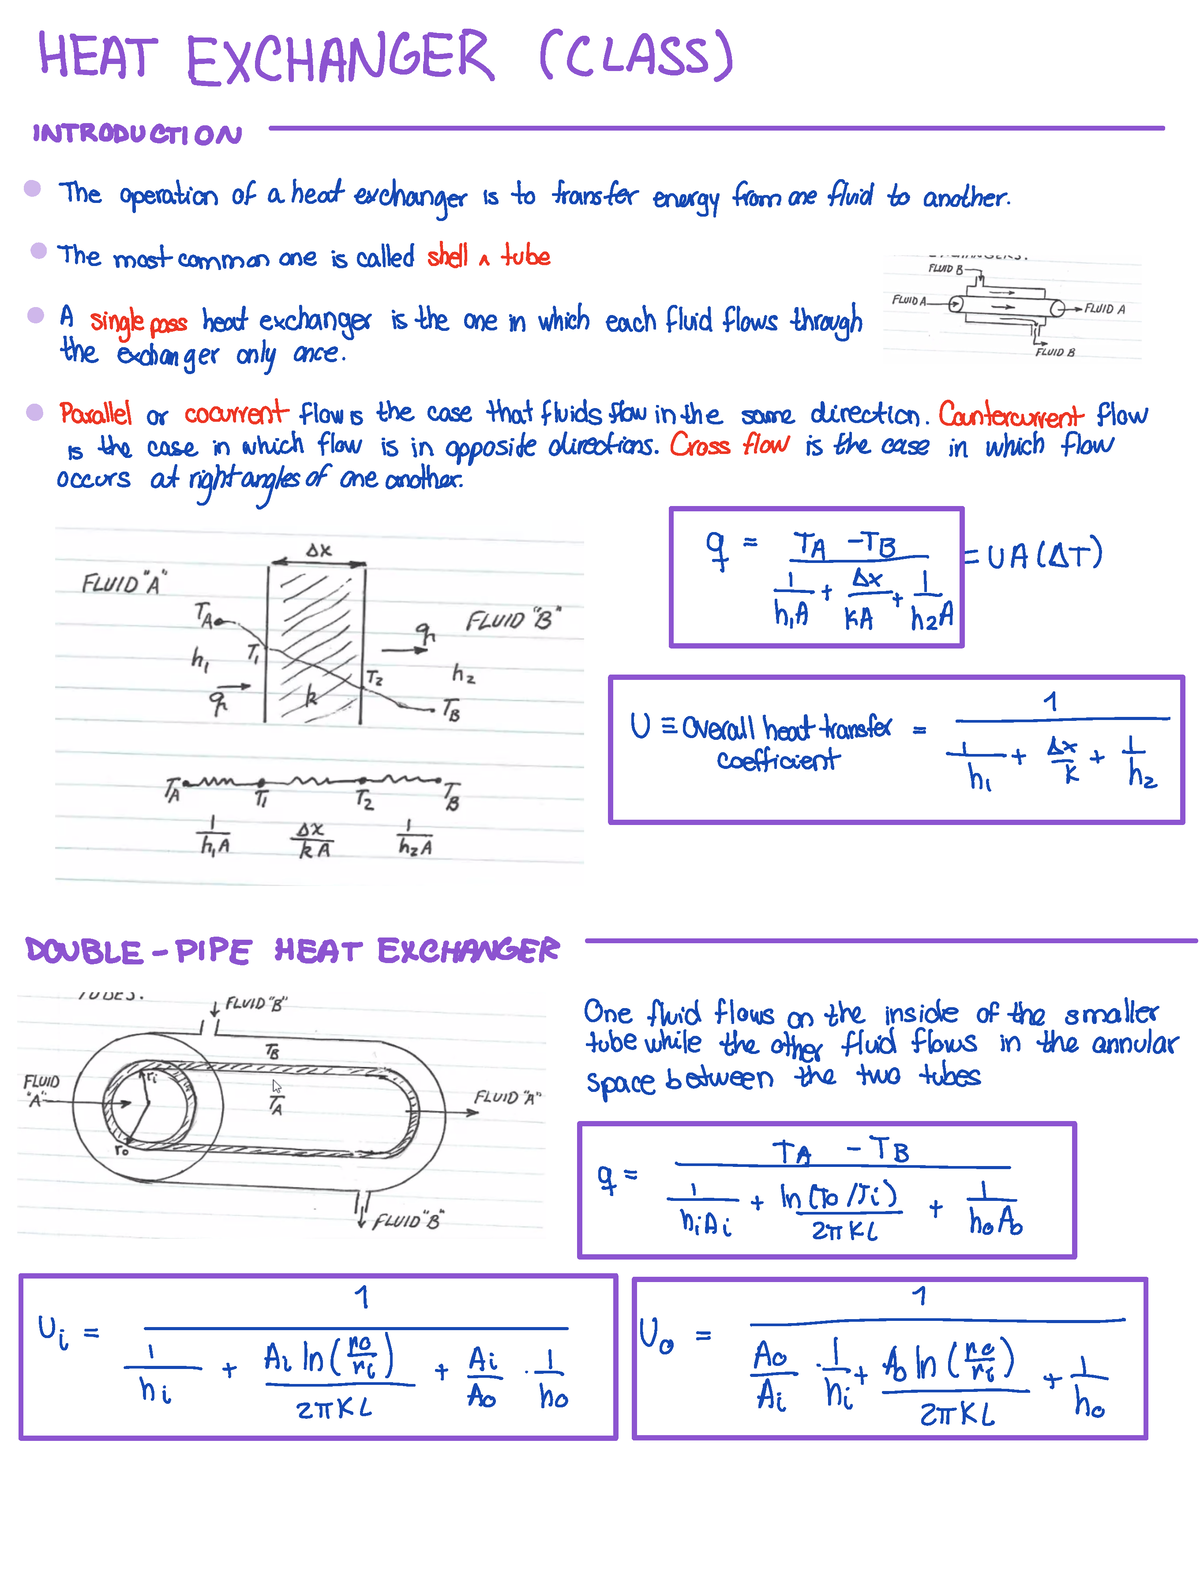 HEAT EXCHANGER (CLASS)
INTRODUCTION
The operation of a heat exchanger is to transfer energy from one fluid to another.
The most common one is called shell ∧ tube
FLUID B
FLUID A
FLUID A
FLUID B
A single pass heat exchanger is the one in which each fluid flows through
the exchanger only once.
Parallel or cocurrent flow is the case that fluids flow in the same direction. Countercurrent flow
is the case in which flow is in opposite directions. Cross flow is the case in which flow
occurs at right angles of one another.
Δx
FLUID "A"
TA
FLUID "B"
h1 T1 q
T2 h2
q k TB
TA T1 T2 TB
1/h1A Δx/kA 1/h2A
q = (TA - TB) / (1/h1A + Δx/KA + 1/h2A) = UA(ΔT)
U ≡ Overall heat transfer = 1 / (1/h1 + Δx/K + 1/h2)
coefficient
DOUBLE-PIPE HEAT EXCHANGER
TUBES.
FLUID "B"
TB
FLUID ri
"A" TA FLUID "A"
ro
FLUID "B"
One fluid flows on the inside of the smaller
tube while the other fluid flows in the annular
space between the two tubes
q = (TA - TB) / (1/hiAi + ln(ro/ri)/2πKL + 1/hoAo)
Ui = 1 / (1/hi + Ai ln(ro/ri)/2πKL + Ai/Ao · 1/ho)
Uo = 1 / (Ao/Ai · 1/hi + Ao ln(ro/ri)/2πKL + 1/ho)